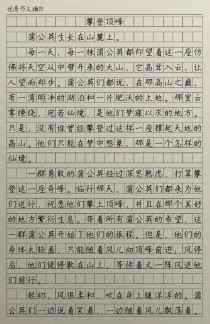 优秀作文摘抄
攀登顶峰
蒲公英生长在山麓上。
每一天，每一株蒲公英都仰望着这一座仿
佛将天空从中劈开来的大山，它高耸入云，让
人望而却步。蒲公英们都说，在那高山之巅，
有一湾明净的湖泊和一片肥沃的土地。那里云
雾缭绕，宛若仙境，是他们梦寐以求的地方。
只是，没有谁曾经攀登过这样一座撑起天地的
高山。他们只能在梦中想象，那是一个怎样的
仙境。
一群勇敢的蒲公英经过深思熟虑，打算攀
登这一座奇峰。临行那天，蒲公英们都来为他
们送行，祝愿他们攀上顶峰，并且在那个美好
的地方繁衍生息。带着所有蒲公英的希望，这
一群蒲公英开始了他们的旅程。但是，他们的
身体太轻盈，只能随着风儿向顶峰前进，风停
后，他们便停歇在山上，等待着又一阵风送他
们前行。
起初，风很柔和，吹在身上暖洋洋的。蒲
公英们一边说着笑着，一边随着风儿飘动。